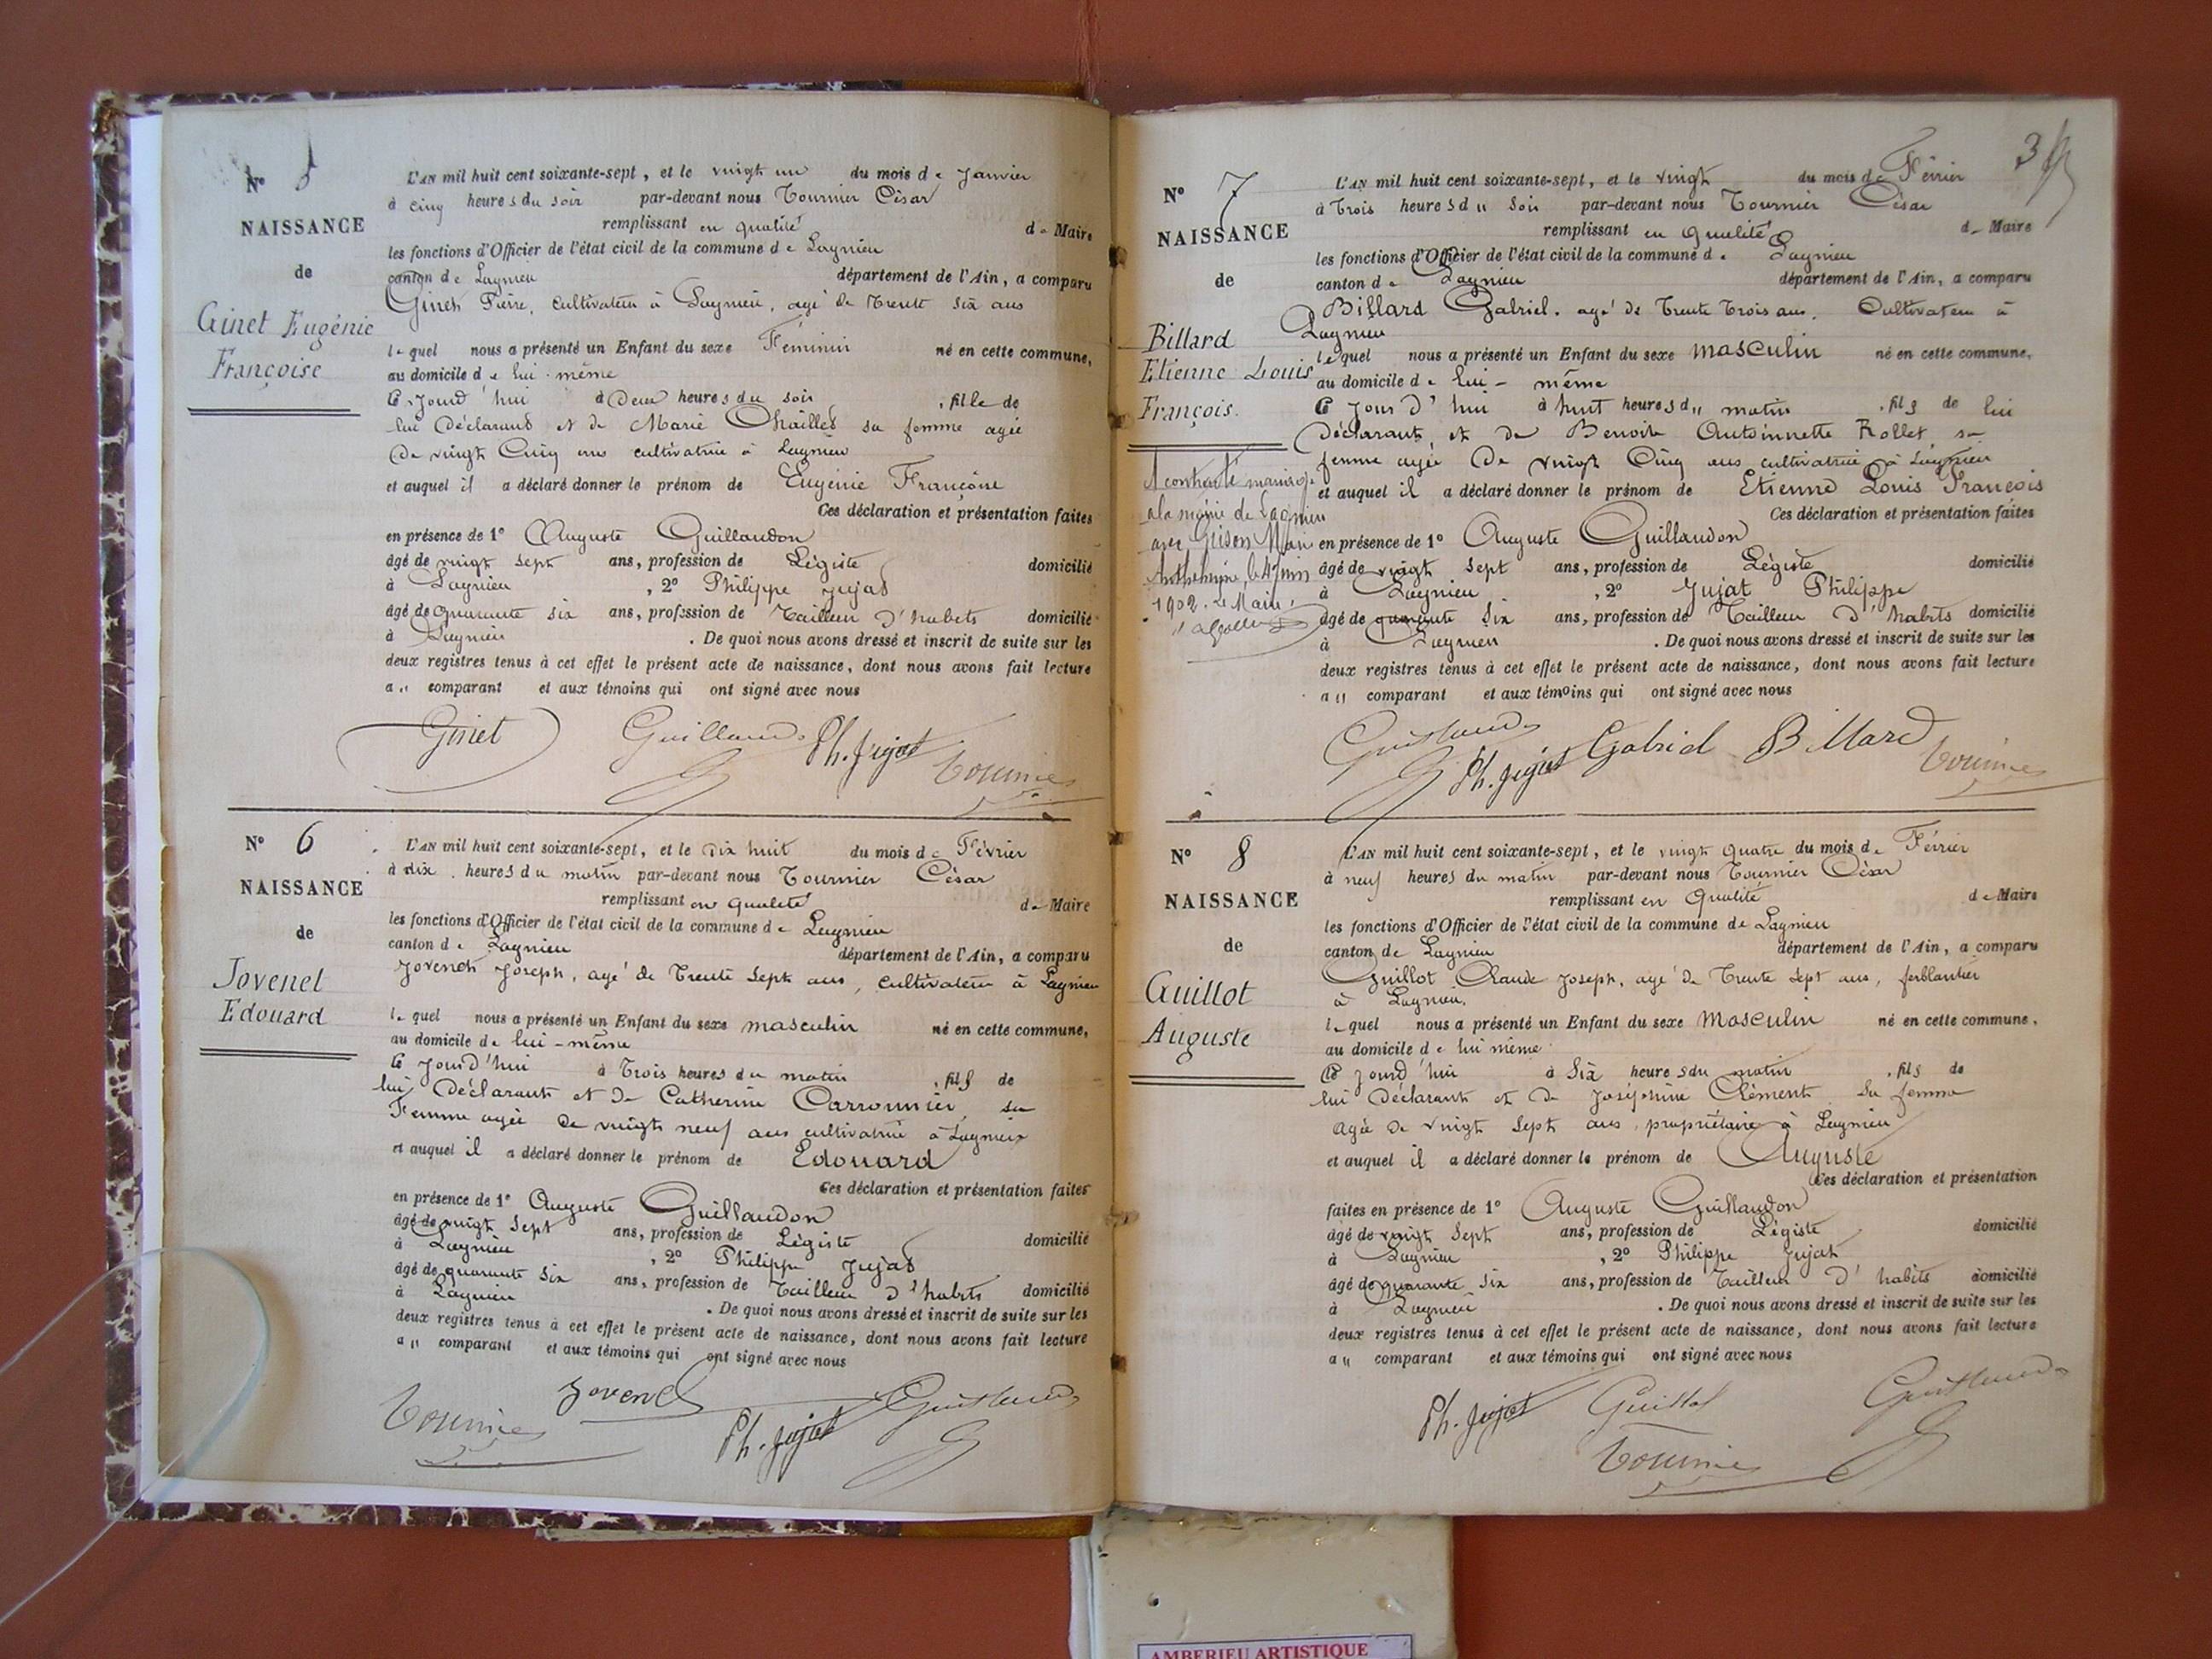 N° 5
NAISSANCE
de
Ginet Eugénie
Françoise
L'AN mil huit cent soixante-sept, et le vingt un du mois de Janvier
à cinq heures du soir par-devant nous Tournier César
remplissant en qualité de Maire
les fonctions d'Officier de l'état civil de la commune de Lagnieu
canton de Lagnieu département de l'Ain, a comparu
Ginet Pierre, cultivateur à Lagnieu, agé de trente six ans
lequel nous a présenté un Enfant du sexe Féminin né en cette commune,
au domicile de lui-même
ce jourd'hui à Deux heures du soir, fille de
lui Déclarant et de Marie Chailles sa femme agée
de vingt Cinq ans cultivatrice à Lagnieu
et auquel il a déclaré donner le prénom de Eugénie Françoise
Ces déclaration et présentation faites
en présence de 1° Auguste Guillaudon
âgé de vingt sept ans, profession de Légiste domicilié
à Lagnieu, 2° Philippe Jujat
âgé de quarante six ans, profession de Tailleur d'habits domicilié
à Lagnieu. De quoi nous avons dressé et inscrit de suite sur les
deux registres tenus à cet effet le présent acte de naissance, dont nous avons fait lecture
au comparant et aux témoins qui ont signé avec nous
Ginet Guillaudon Ph. Jujat Tournier
N° 6
NAISSANCE
de
Jovenet
Edouard
L'AN mil huit cent soixante-sept, et le dix huit du mois de Février
à dix heures du matin par-devant nous Tournier César
remplissant en qualité de Maire
les fonctions d'Officier de l'état civil de la commune de Lagnieu
canton de Lagnieu département de l'Ain, a comparu
Jovenet Joseph, agé de trente sept ans, cultivateur à Lagnieu
lequel nous a présenté un Enfant du sexe masculin né en cette commune,
au domicile de lui-même
ce jourd'hui à Trois heures du matin, fils de
lui Déclarant et de Catherine Carronnier, sa
Femme agée de vingt neuf ans cultivatrice à Lagnieu
et auquel il a déclaré donner le prénom de Edouard
Ces déclaration et présentation faites
en présence de 1° Auguste Guillaudon
âgé de vingt sept ans, profession de Légiste domicilié
à Lagnieu, 2° Philippe Jujat
âgé de quarante six ans, profession de Tailleur d'habits domicilié
à Lagnieu. De quoi nous avons dressé et inscrit de suite sur les
deux registres tenus à cet effet le présent acte de naissance, dont nous avons fait lecture
au comparant et aux témoins qui ont signé avec nous
Tournier Jovenet Ph. Jujat Guillaudon
3
N° 7
NAISSANCE
de
Billard
Etienne Louis
François.
A contracté mariage
à la mairie de Lagnieu
avec Grison Marie
Anthelmine, le 4 juin
1902. Le Maire,
L'AN mil huit cent soixante-sept, et le vingt du mois de Février
à Trois heures du soir par-devant nous Tournier César
remplissant en qualité de Maire
les fonctions d'Officier de l'état civil de la commune de Lagnieu
canton de Lagnieu département de l'Ain, a comparu
Billard Gabriel. agé de Trente Trois ans. Cultivateur à
Lagnieu
lequel nous a présenté un Enfant du sexe masculin né en cette commune,
au domicile de lui-même
ce jour d'hui à huit heures du matin, fils de lui
Déclarant, et de Benoite Antoinnette Rollet, sa
femme agée De vingt Cinq ans cultivatrice à Lagnieu
et auquel il a déclaré donner le prénom de Etienne Louis François
Ces déclaration et présentation faites
en présence de 1° Auguste Guillaudon
âgé de vingt sept ans, profession de Légiste domicilié
à Lagnieu, 2° Jujat Philippe
âgé de quarante six ans, profession de Tailleur d'habits domicilié
à Lagnieu. De quoi nous avons dressé et inscrit de suite sur les
deux registres tenus à cet effet le présent acte de naissance, dont nous avons fait lecture
au comparant et aux témoins qui ont signé avec nous
Guillaudon Ph. Jujat Gabriel Billard Tournier
N° 8
NAISSANCE
de
Guillot
Auguste
L'AN mil huit cent soixante-sept, et le vingt quatre du mois de Février
à neuf heures du matin par-devant nous Tournier César
remplissant en qualité de Maire
les fonctions d'Officier de l'état civil de la commune de Lagnieu
canton de Lagnieu département de l'Ain, a comparu
Guillot Claude Joseph, agé de Trente sept ans, ferblantier
à Lagnieu.
lequel nous a présenté un Enfant du sexe Masculin né en cette commune,
au domicile de lui même
ce jourd'hui à Six heures du matin, fils de
lui Déclarant et de Joséphine Clément sa femme
agée de vingt sept ans, propriétaire à Lagnieu
et auquel il a déclaré donner le prénom de Auguste
Ces déclaration et présentation
faites en présence de 1° Auguste Guillaudon
âgé de vingt sept ans, profession de Légiste domicilié
à Lagnieu, 2° Philippe Jujat
âgé de quarante six ans, profession de Tailleur d'habits domicilié
à Lagnieu. De quoi nous avons dressé et inscrit de suite sur les
deux registres tenus à cet effet le présent acte de naissance, dont nous avons fait lecture
au comparant et aux témoins qui ont signé avec nous
Ph. Jujat Guillot Guillaudon
Tournier
AMBERIEU ARTISTIQUE